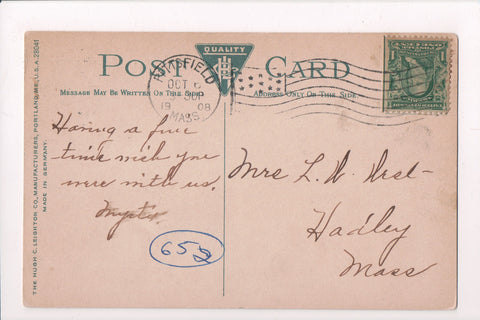 POST CARD
QUALITY
MESSAGE MAY BE WRITTEN ON THIS SIDE.
ADDRESS ONLY ON THIS SIDE.
PITTSFIELD
OCT
19 08
MASS.
Having a fine
time wish you
were with us.
Mrs L. N. West
Hadley
Mass
652
THE HUGH C. LEIGHTON CO., MANUFACTURERS, PORTLAND, ME., U.S.A. 28041
MADE IN GERMANY.